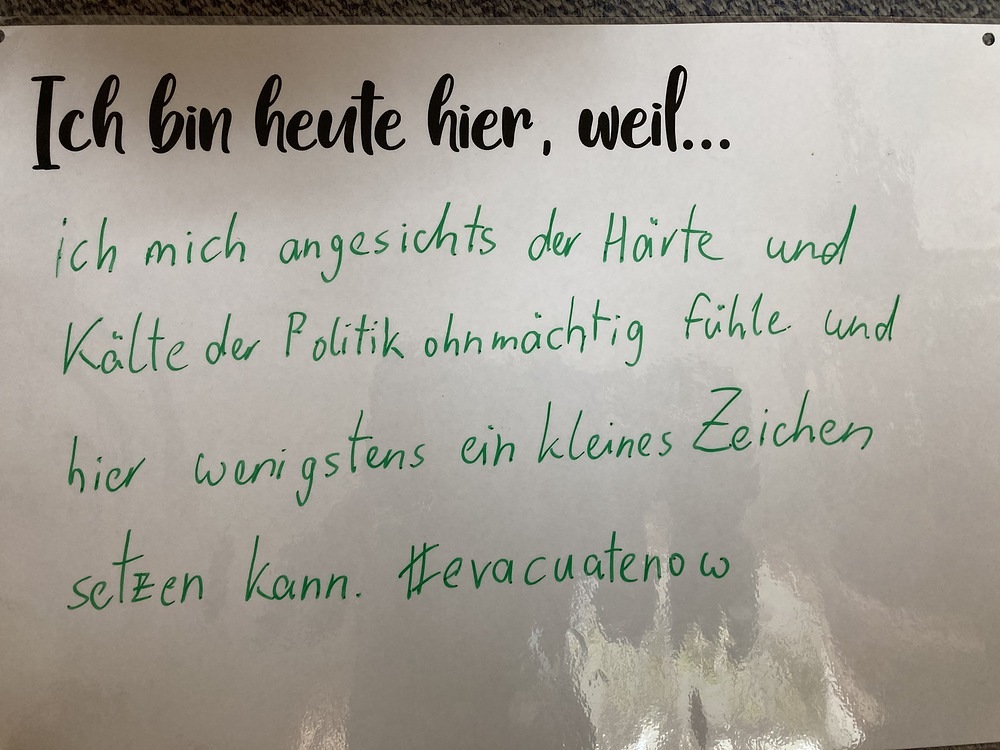 Ich bin heute hier, weil...
ich mich angesichts der Härte und
Kälte der Politik ohnmächtig fühle und
hier wenigstens ein kleines Zeichen
setzen kann. #evacuatenow